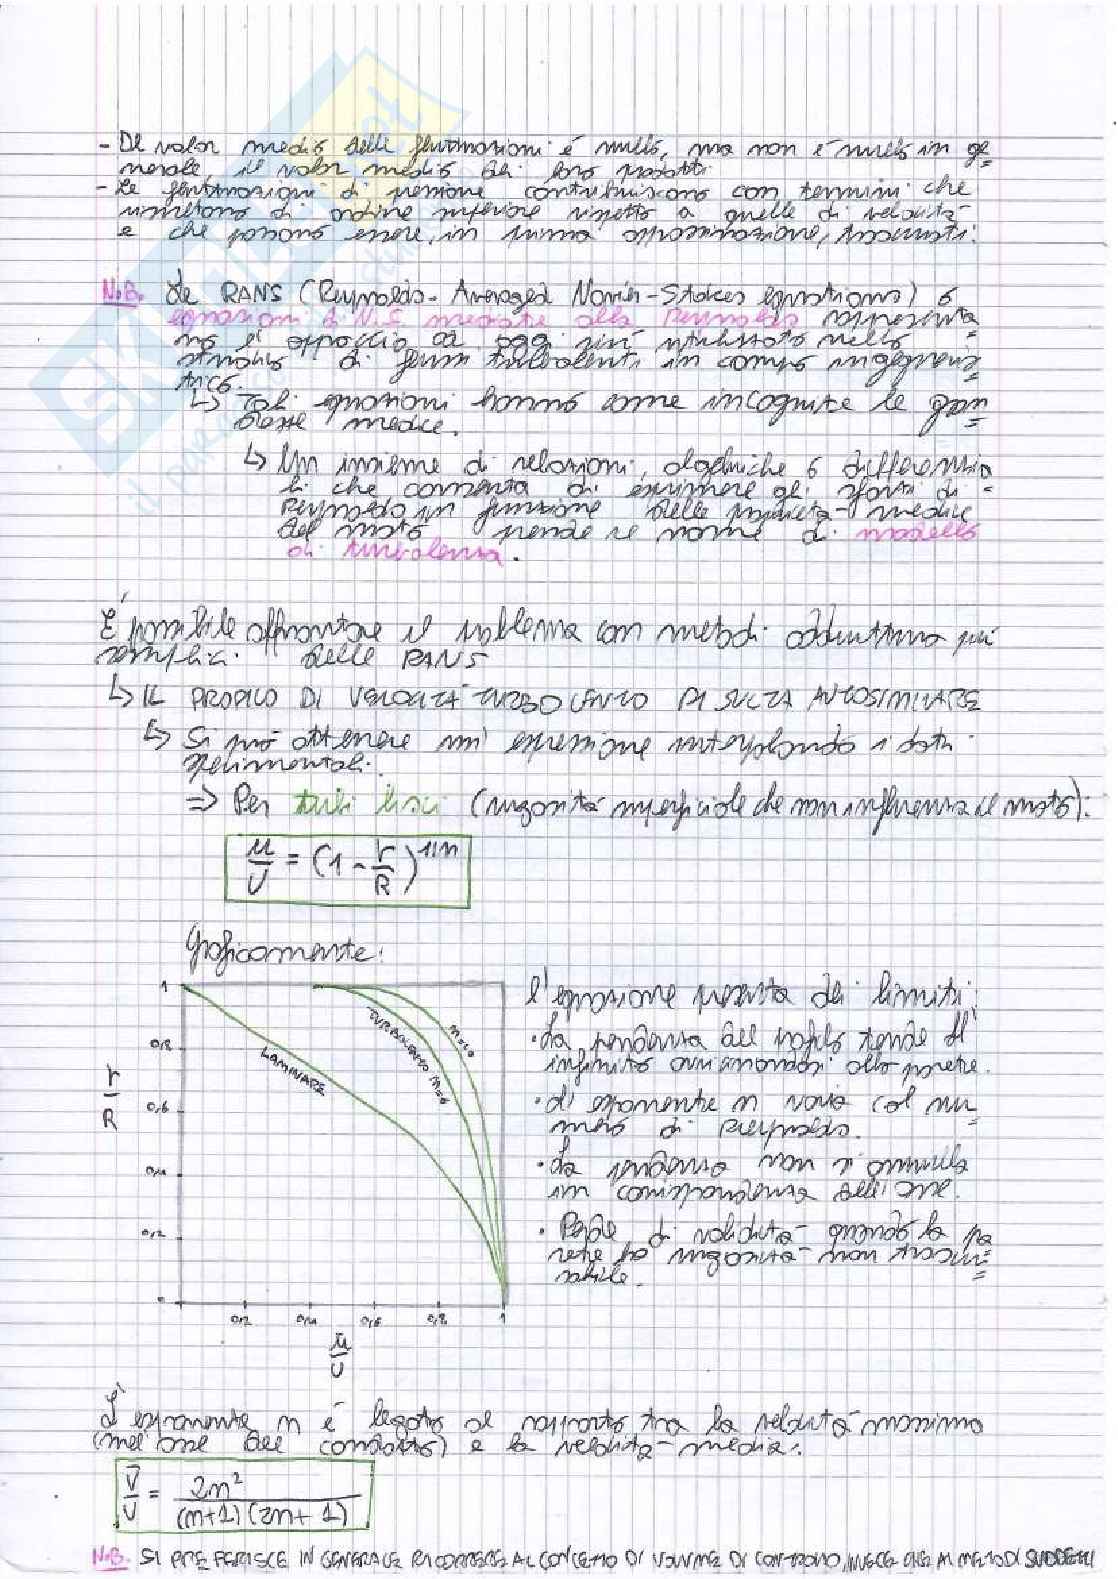 - Il valor medio delle fluttuazioni è nullo, ma non è nullo in ge=
nerale, il valor medio dei loro prodotti.
- Le fluttuazioni di pressione contribuiscono con termini che
risultano di ordine inferiore rispetto a quelle di velocità
e che possono essere, in prima approssimazione, trascurati.
N.B. Le RANS (Reynolds-Averaged Navier-Stokes equations) o
equazioni di N.S mediate alla Reynolds rappresenta
no l'approccio ad oggi più utilizzato nello
studio di flussi turbolenti in campo ingegneri=
stico.
↳ Tali equazioni hanno come incognite le gran
dezze medie. =
↳ Un insieme di relazioni, algebriche o differenzia
li che consenta di esprimere gli sforzi di -
Reynolds in funzione delle proprietà medie
del moto prende il nome di modello
di turbolenza.
È possibile affrontare il problema con metodi addirittura più
semplici delle RANS
↳ IL PROFILO DI VELOCITÀ TURBOLENTO RISULTA AUTOSIMILARE
↳ Si può ottenere un'espressione interpolando i dati
sperimentali.
⇒ Per tubi lisci (rugosità superficiale che non influenza il moto):
u/U = (1 - r/R)^1/n
Graficamente:
1
0,8
0,6
0,4
0,2
0
r/R
LAMINARE
TURBOLENTO n=6
n=10
0,2 0,4 0,6 0,8 1
ū/U
L'equazione presenta dei limiti:
• La pendenza del profilo tende all'
infinito avvicinandosi alla parete.
• L'esponente n varia col nu=
mero di Reynolds.
• La pendenza non si annulla
in corrispondenza dell'asse.
• Perde di validità quando la pa
rete ha rugosità non trascu=
rabile. =
L'esponente n è legato al rapporto tra la velocità massima
(nell'asse del condotto) e la velocità media:
V̄/U = 2n²/(n+1)(2n+1)
N.B. SI PREFERISCE IN GENERALE RICORRERE AL CONCETTO DI VOLUME DI CONTROLLO, INVECE CHE AI METODI SUDDETTI